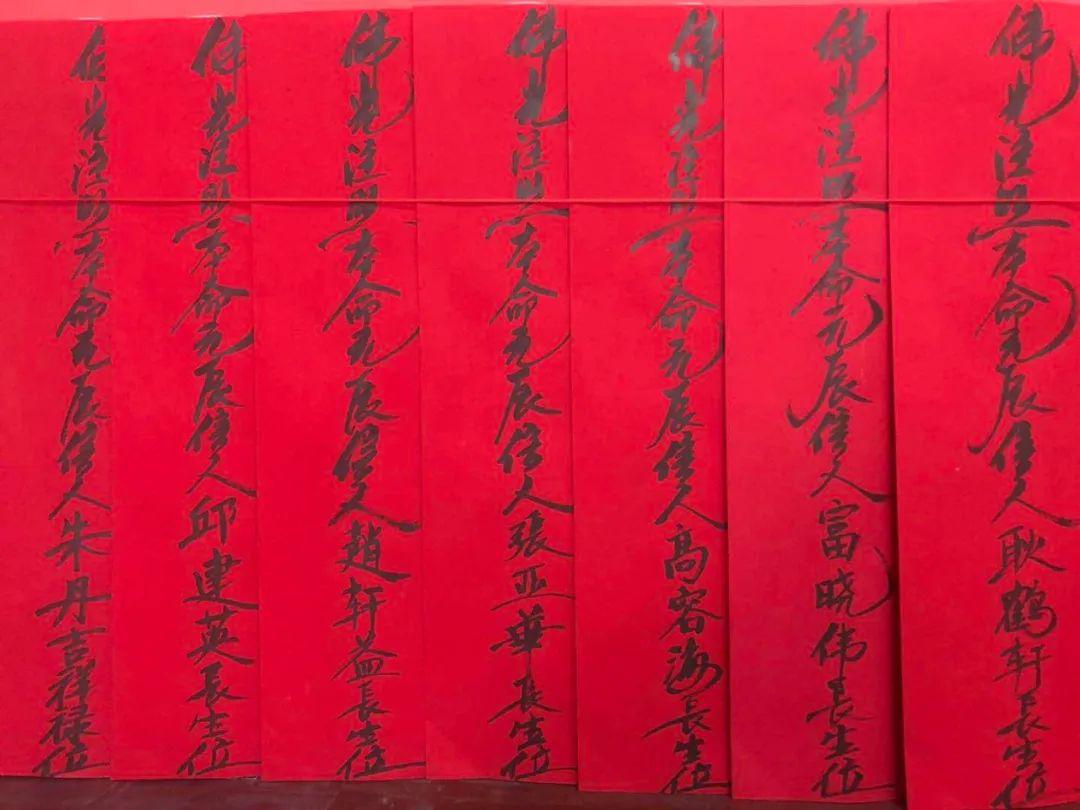 佛光注照本命元辰信人耿鹤轩長生位
佛光注照本命元辰信人富晓伟長生位
佛光注照本命元辰信人高容海長生位
佛光注照本命元辰信人張亚華長生位
佛光注照本命元辰信人趙轩益長生位
佛光注照本命元辰信人邱建英長生位
佛光注照本命元辰信人朱丹吉祥禄位